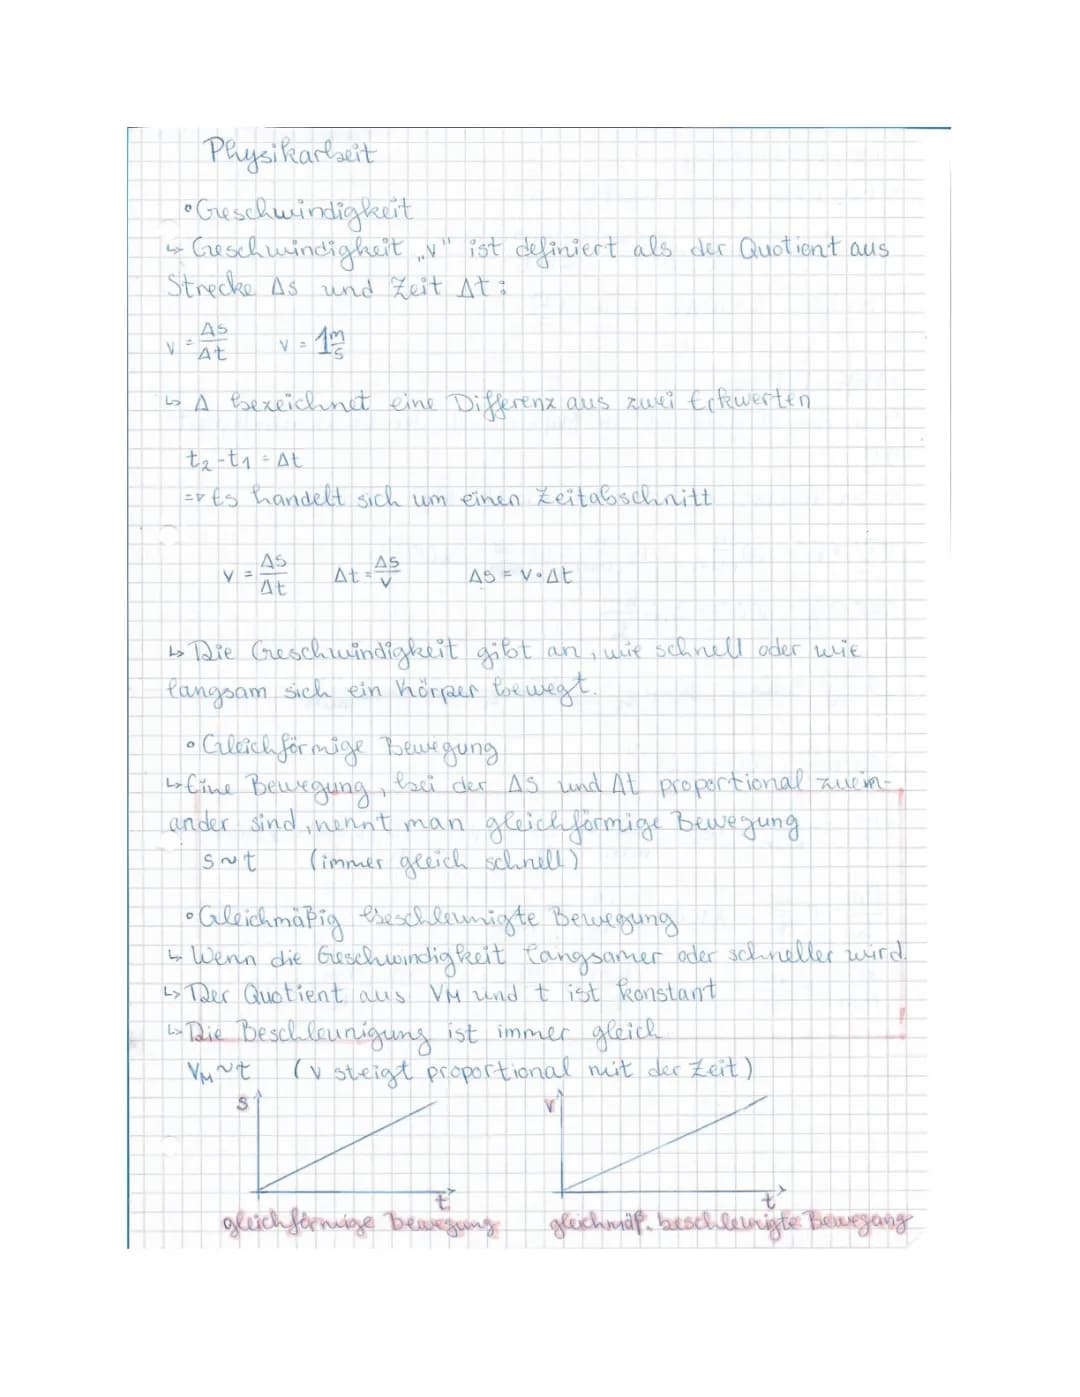 Physikarbeit
° Geschwindigkeit
↳ Geschwindigkeit „v" ist definiert als der Quotient aus
Strecke Δs und Zeit Δt:
v = Δs/Δt v = 1 m/s
↳ Δ bezeichnet eine Differenz aus zwei Eckwerten
t₂ - t₁ = Δt
=> Es handelt sich um einen Zeitabschnitt
v = Δs/Δt Δt = Δs/v Δs = v · Δt
↳ Die Geschwindigkeit gibt an, wie schnell oder wie
langsam sich ein Körper bewegt.
° Gleichförmige Bewegung
↳ Eine Bewegung, bei der Δs und Δt proportional zuein-
ander sind, nennt man gleichförmige Bewegung
s ~ t (immer gleich schnell)
° Gleichmäßig beschleunigte Bewegung
↳ Wenn die Geschwindigkeit langsamer oder schneller wird.
↳ Der Quotient aus VM und t ist konstant
↳ Die Beschleunigung ist immer gleich !
VM ~ t (v steigt proportional mit der Zeit)
s v
t t
gleichförmige Bewegung gleichmäß. beschleunigte Bewegung